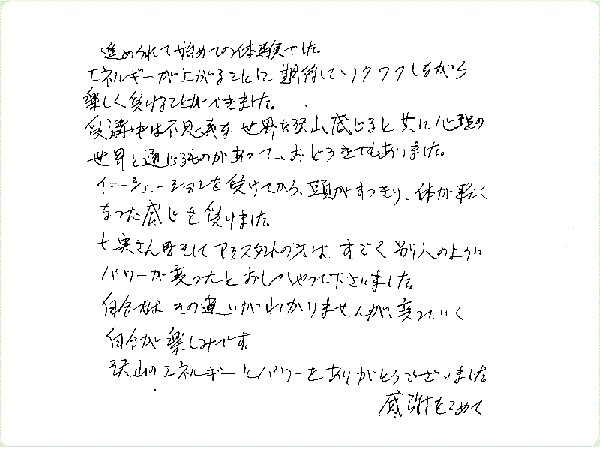 進められて始めての体験でした。
エネルギーが上がることに期待してワクワクしながら
楽しく受けることができました。
受講中は不思議な世界を沢山感じると共に心理の
世界と通じるものがあって、おどろきでもありました。
イニシエーションを受けてから、頭がすっきり、体が軽く
なった感じを受けました。
七実さん そして アシスタントの方は、すごく別人のように
パワーが変ったとおっしゃって下さいました。
自分では その違いがわかりませんが、変っていく
自分が楽しみです。
沢山のエネルギーとパワーをありがとうございました
感謝をこめて